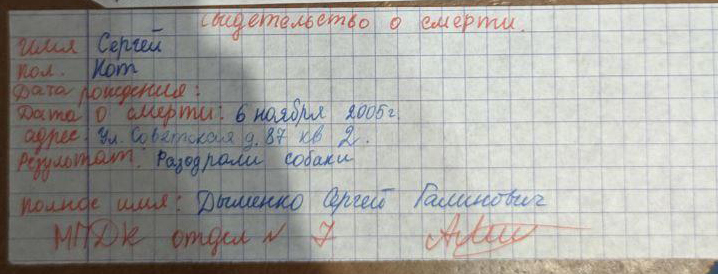 Свидетельство о смерти.
Имя Сергей
пол. Кот
Дата рождения:
Дата о смерти: 6 ноября 2005г
адрес. Ул. Советская д. 87 кв 2.
Результат. Разодрали собаки
полное имя: Дыменко Сергей Галинович
МПДК отдел № 7